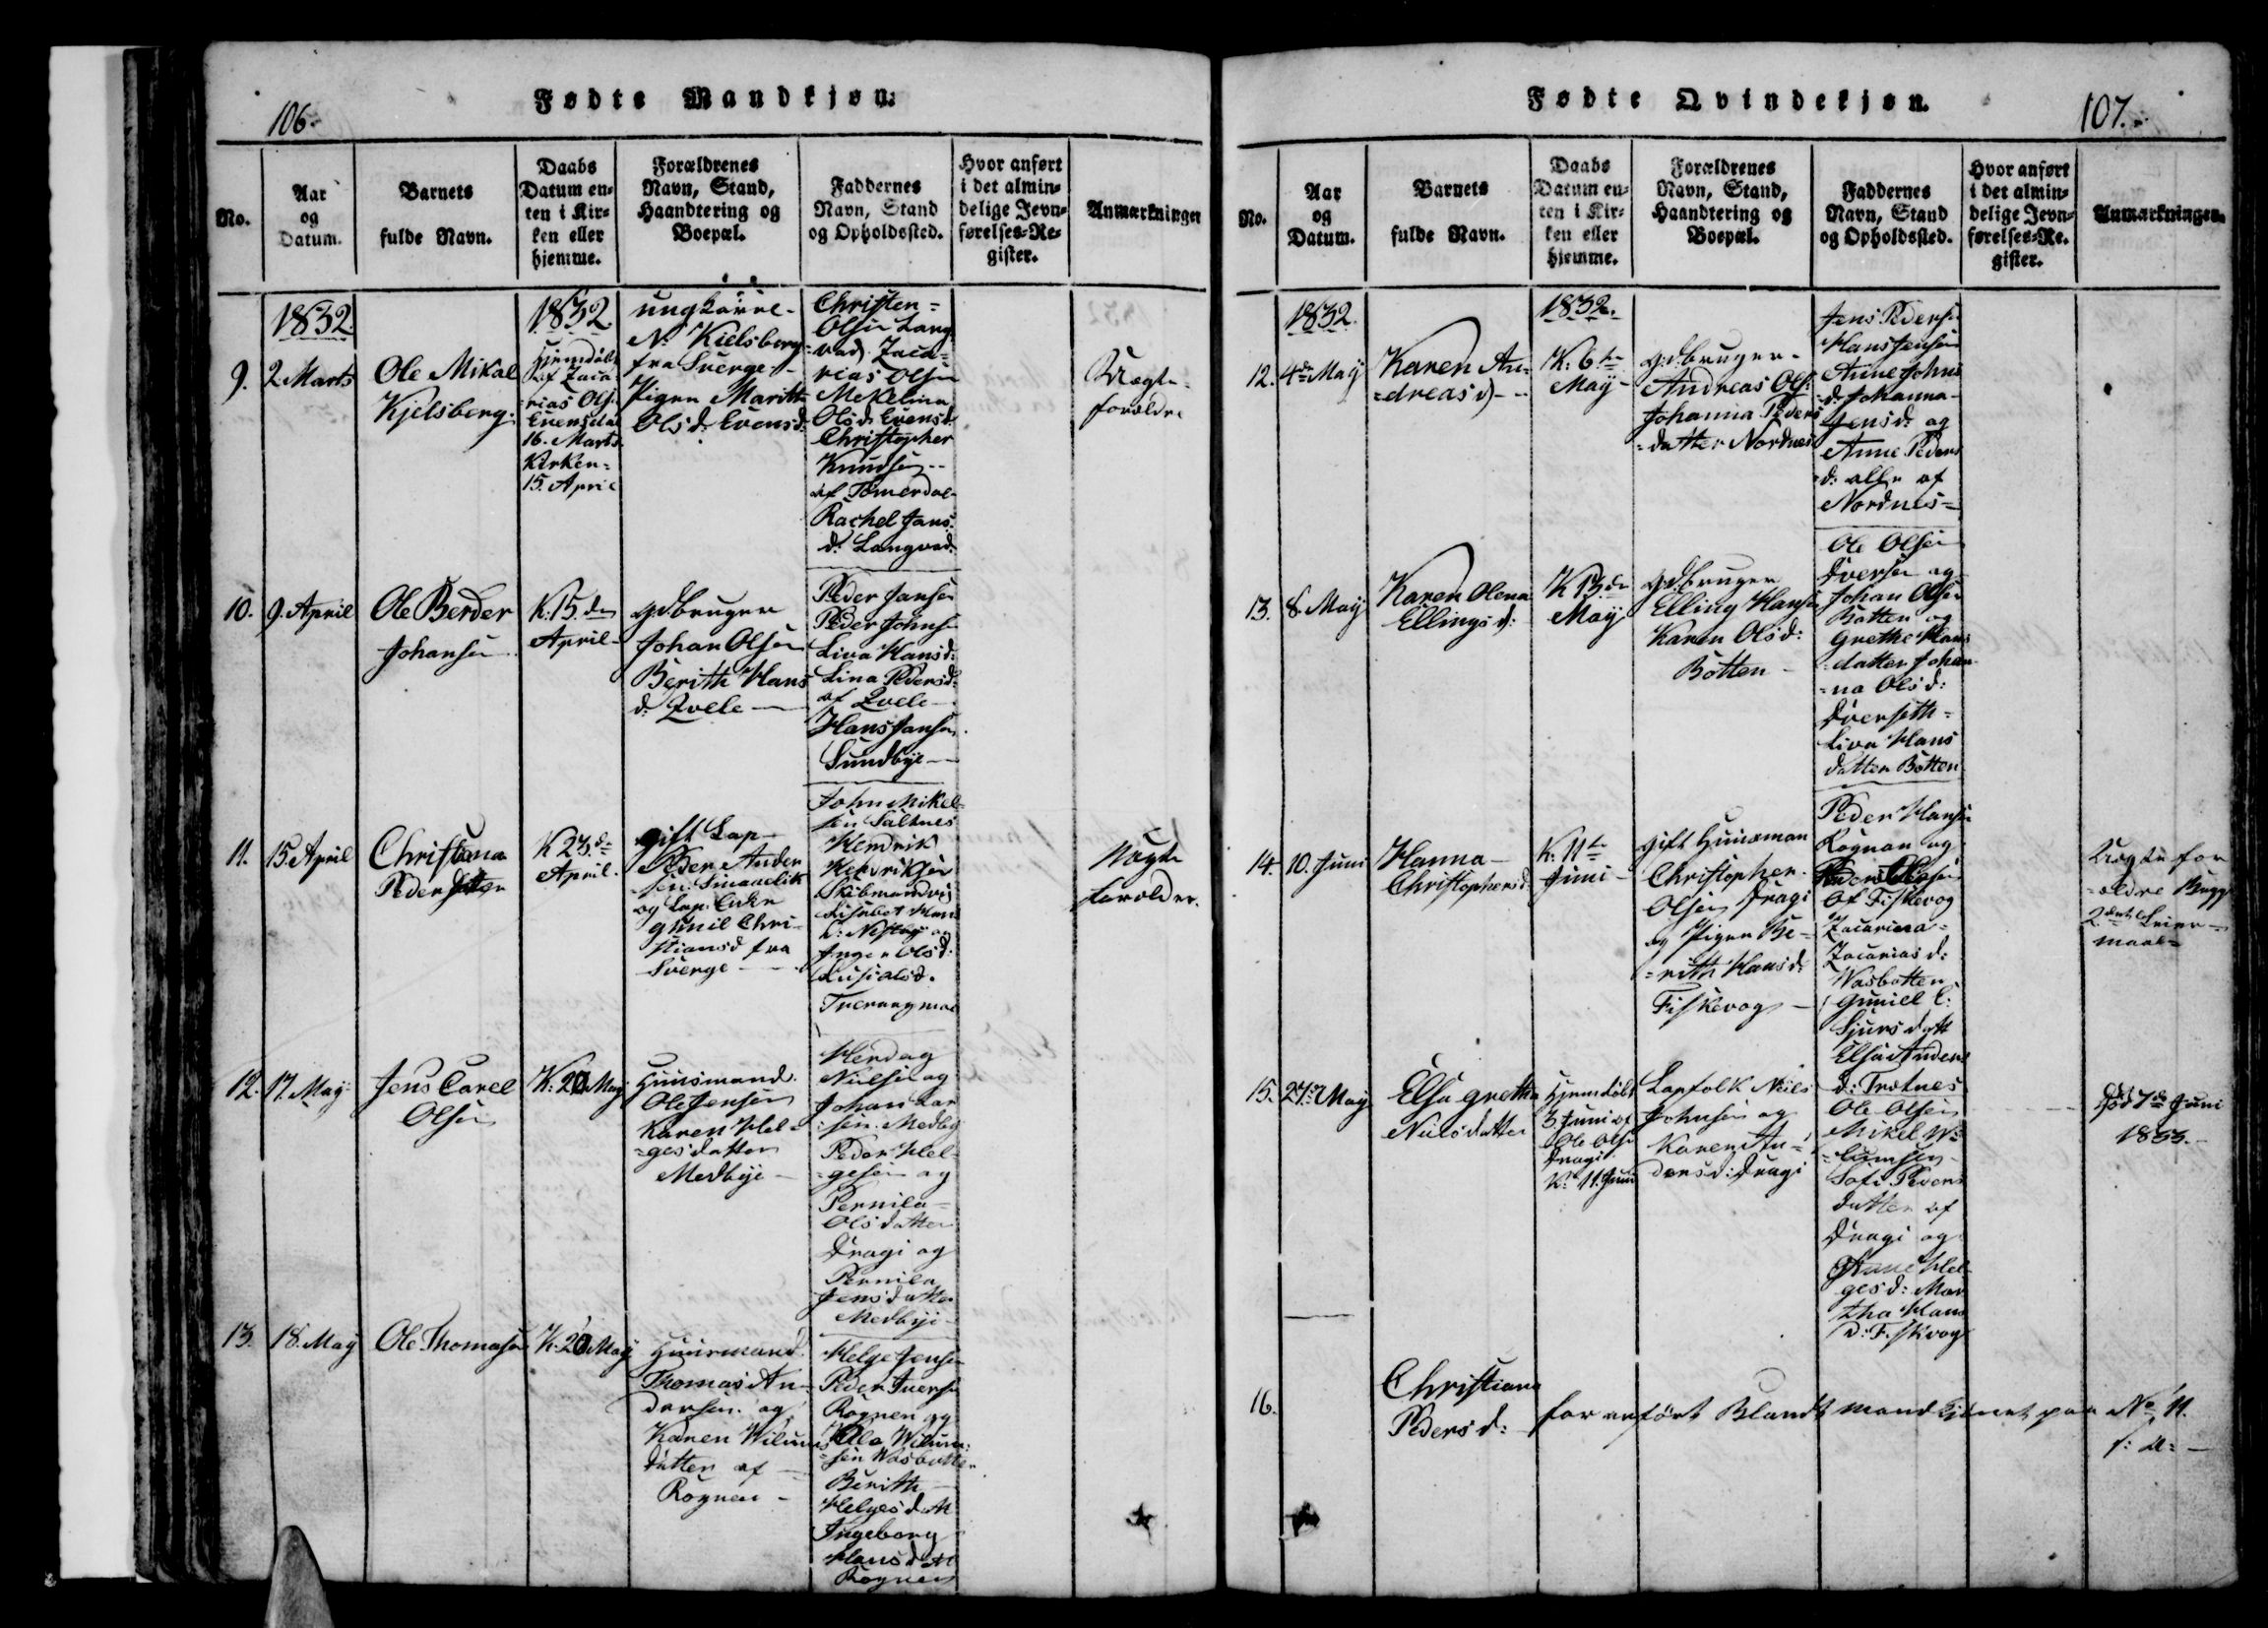 106.
Fødte Mandkjøn.
No.
Aar
og
Datum.
Barnets
fulde Navn.
Daabs
Datum en-
ten i Kir-
ken eller
hjemme.
Forældrenes
Navn, Stand,
Haandtering og
Boepæl.
Faddernes
Navn, Stand
og Opholdssted.
Hvor anført
i det almin-
delige Jevn-
førelses-Re-
gister.
Anmærkninger
1832.
9.
2 Marts
Ole Mikal
Kjelsberg.
1832
Hjemdöbt
af Zaca-
rias Ols.
Evensdal
16. Marts
Kirken=
15. April
ungkarre-
N. Kielsberg
fra Sverge
Pigen Maritt
Olsd: Evensd:
Christen=
Olsen Lang
vad. Zaca=
rias Olsen
Mekelina
Olsd. Evensd.
Christopher
Knudsen
af Tömerdal
Rachel Jans
d: Langvad.
Uægte
foroldre
10.
9. April
Ole Berder
Johansen
K. 15. de
April
gdbruger
Johan Olsen
Berith Hans
d:
Peder Jansen
Peder Johns.
Liva Hansd:
Lina Pedersd:
af
Hans Jansen
Sundbye
11.
15 April
Christiana
Peder
K 23. de
April.
gift Lap
Peder Ander
sen
og Lap. Enke
gunil Chri-
stiansd fra
Sverge
John Mikel=
sen Saltnes
Hendrik
Hendriksen
Lisabet Hans
d: Nestby og
Inger Olsd:
Uægte
foroldre.
12.
17. May
Jens Carel
Olsen
K: 20 May
Huusmand.
Ole Jensen
Karen Hel=
=gesdatter
Medbye
Nielsen og
Johan Lar
sen. Medby
Peder Hel-
=gesen og
Pernila=
Olsdatter
Dragi og
Pernila
Jensdatter
Medbye
13.
18. May
Ole Thomasen
K. 20 May
Huusmand.
Thomas An-
dersen. og
Karen Wilums
datter af
Rognen
Helge Jensen
Peder Iversen
Rognen og
Ole Wilum=
sen Wasbotten
Berith
Helgesdatt
Ingeborg
Hansdatt
Rognen
Fødte Qvindekjøn.
107.
No.
Aar
og
Datum.
Barnets
fulde Navn.
Daabs
Datum en-
ten i Kir-
ken eller
hjemme.
Forældrenes
Navn, Stand,
Haandtering og
Boepæl.
Faddernes
Navn, Stand
og Opholdssted.
Hvor anført
i det almin-
delige Jevn-
førelses-Re-
gister.
Anmærkninger.
1832.
12.
4de May
Karen An=
=dreasd
1832.
K: 6te
May
gdbruger-
Andreas Ols:
Johanna Peders
=datter Nordnes
Jens Peders.
Hans Jensen
Anne Johns
d: Johanna
Jensd: og
Anne Peders
d: alle af
Nordnes=
13.
8. May
Karen Olena
Ellingsd:
K 13. de
May
gdbruger
Elling Hansen
Karen Olsd:
Botten
Ole Olsen
og
Johan Olsen
Botten og
Grethe Hans
=datter Johan
=na Olsd:
Liva Hans
datter Botten
14.
10. Juni
Hanna
Christophersd:
K: 11te
Juni
gift Huusman
Christopher
Olsen Dragi
og Pigen Be-
=rith Hansd:
Fiskevog
Peder Hansen
Rognan og
af Fiskevog
Zacariasd:
Wasbotten
Guniel E:
Sjursdatt
Elsa Anders
d:
Uegte for
=ældre Begge
2det Leier=
maal=
15.
27de May
Elsa Gretha
Nielsdatter
Hjemdöbt
3 Juni af
Ole Olsen
Dragi
K: 11. Juni
Lapfolk Niels
Johnsen og
Karen An=
dersd: Dragi
Ole Olsen
Mikel Wi=
=lumsen
Sofi Peders
datter af
Dragi og
Anne Hel
gesd: Mar
tha Hans
d: Fiskvog
död 7de Juni
1833.
16.
Christiana
Pedersd:
for anfört Blandt mandkiönet paa No 11.